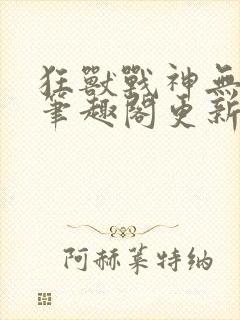 狂獸戰神無
筆趣閣更新
阿赫萊特納